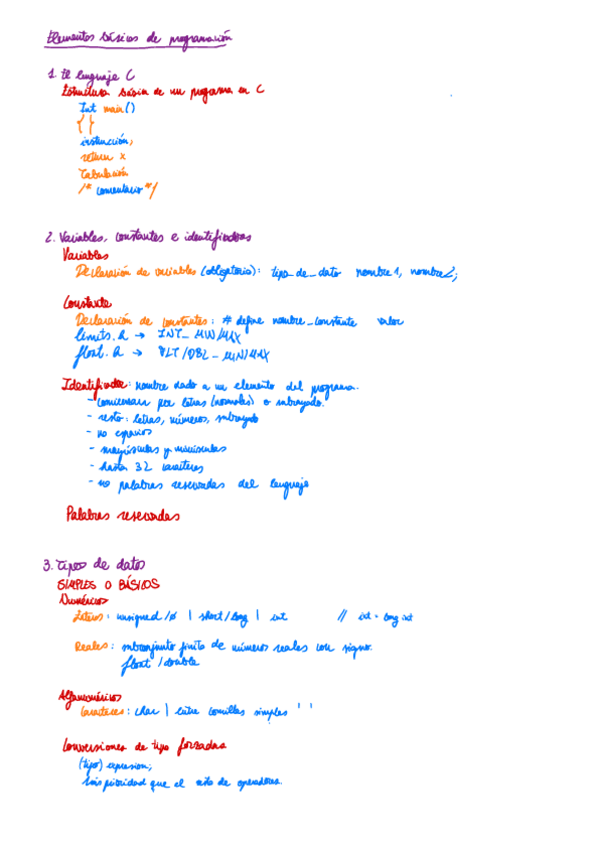 Elementos básicos de programación
1. El lenguaje C
Estructura básica de un programa en C
Int main()
{ }
instrucción;
return x
Tabulación
/* comentario */
2. Variables, constantes e identificadores
Variables
Declaración de variables (obligatorio): tipo_de_dato nombre1, nombre2;
Constante
Declaración de constantes: # define nombre_constante valor
limits.h → INT_MIN/MAX
float.h → FLT/DBL_MIN/MAX
Identificador: nombre dado a un elemento del programa.
- comienzan por letras (normales) o subrayado.
- resto: letras, números, subrayado
- no espacios
- mayúsculas y minúsculas
- hasta 32 caracteres
- no palabras reservadas del lenguaje
Palabras reservadas
3. Tipos de datos
SIMPLES O BÁSICOS
Numéricos
Enteros: unsigned/ø | short/long | int // int = long int
Reales: subconjunto finito de números reales con signo.
float / double
Alfanuméricos
Caracteres: char | entre comillas simples ' '
Conversiones de tipo forzadas
(tipo) expresion;
más prioridad que el resto de operadores.